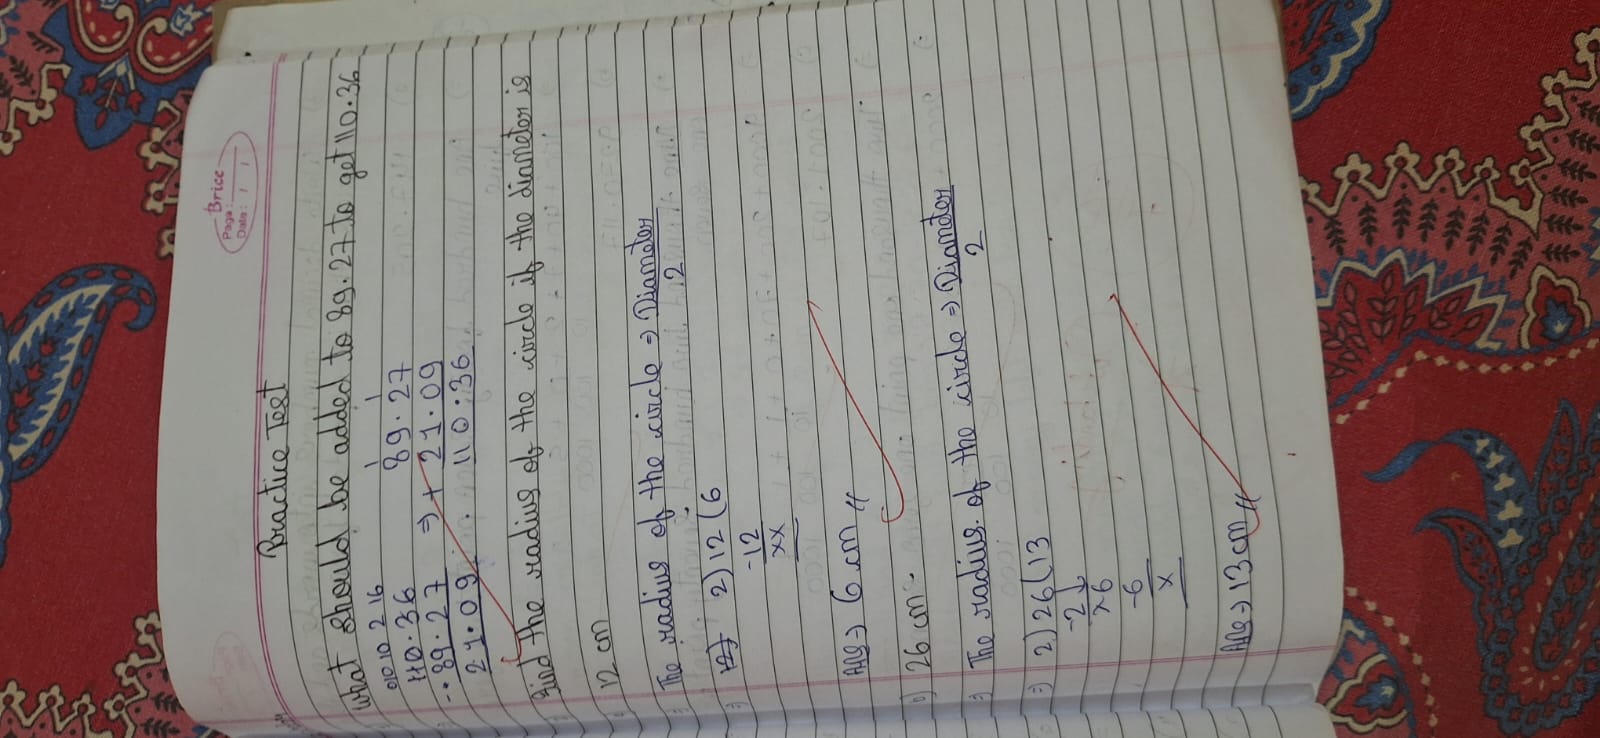 Brice
Page:
Date: / /
Practice Test
What should be added to 89.27 to get 110.36
0 10 10 2 16
110.36 1 1 89.27
- 89.27 ⇒ + 21.09
21.09 110.36
Find the radius of the circle if the diameter is
12 cm
The radius of the circle ⇒ Diameter
2
2) 12 (6
-12
xx
Ans ⇒ 6 cm //
b) 26 cm
⇒ The radius of the circle ⇒ Diameter
2
⇒) 2) 26 (13
-2↓
x6
-6
x
Ans ⇒ 13 cm //